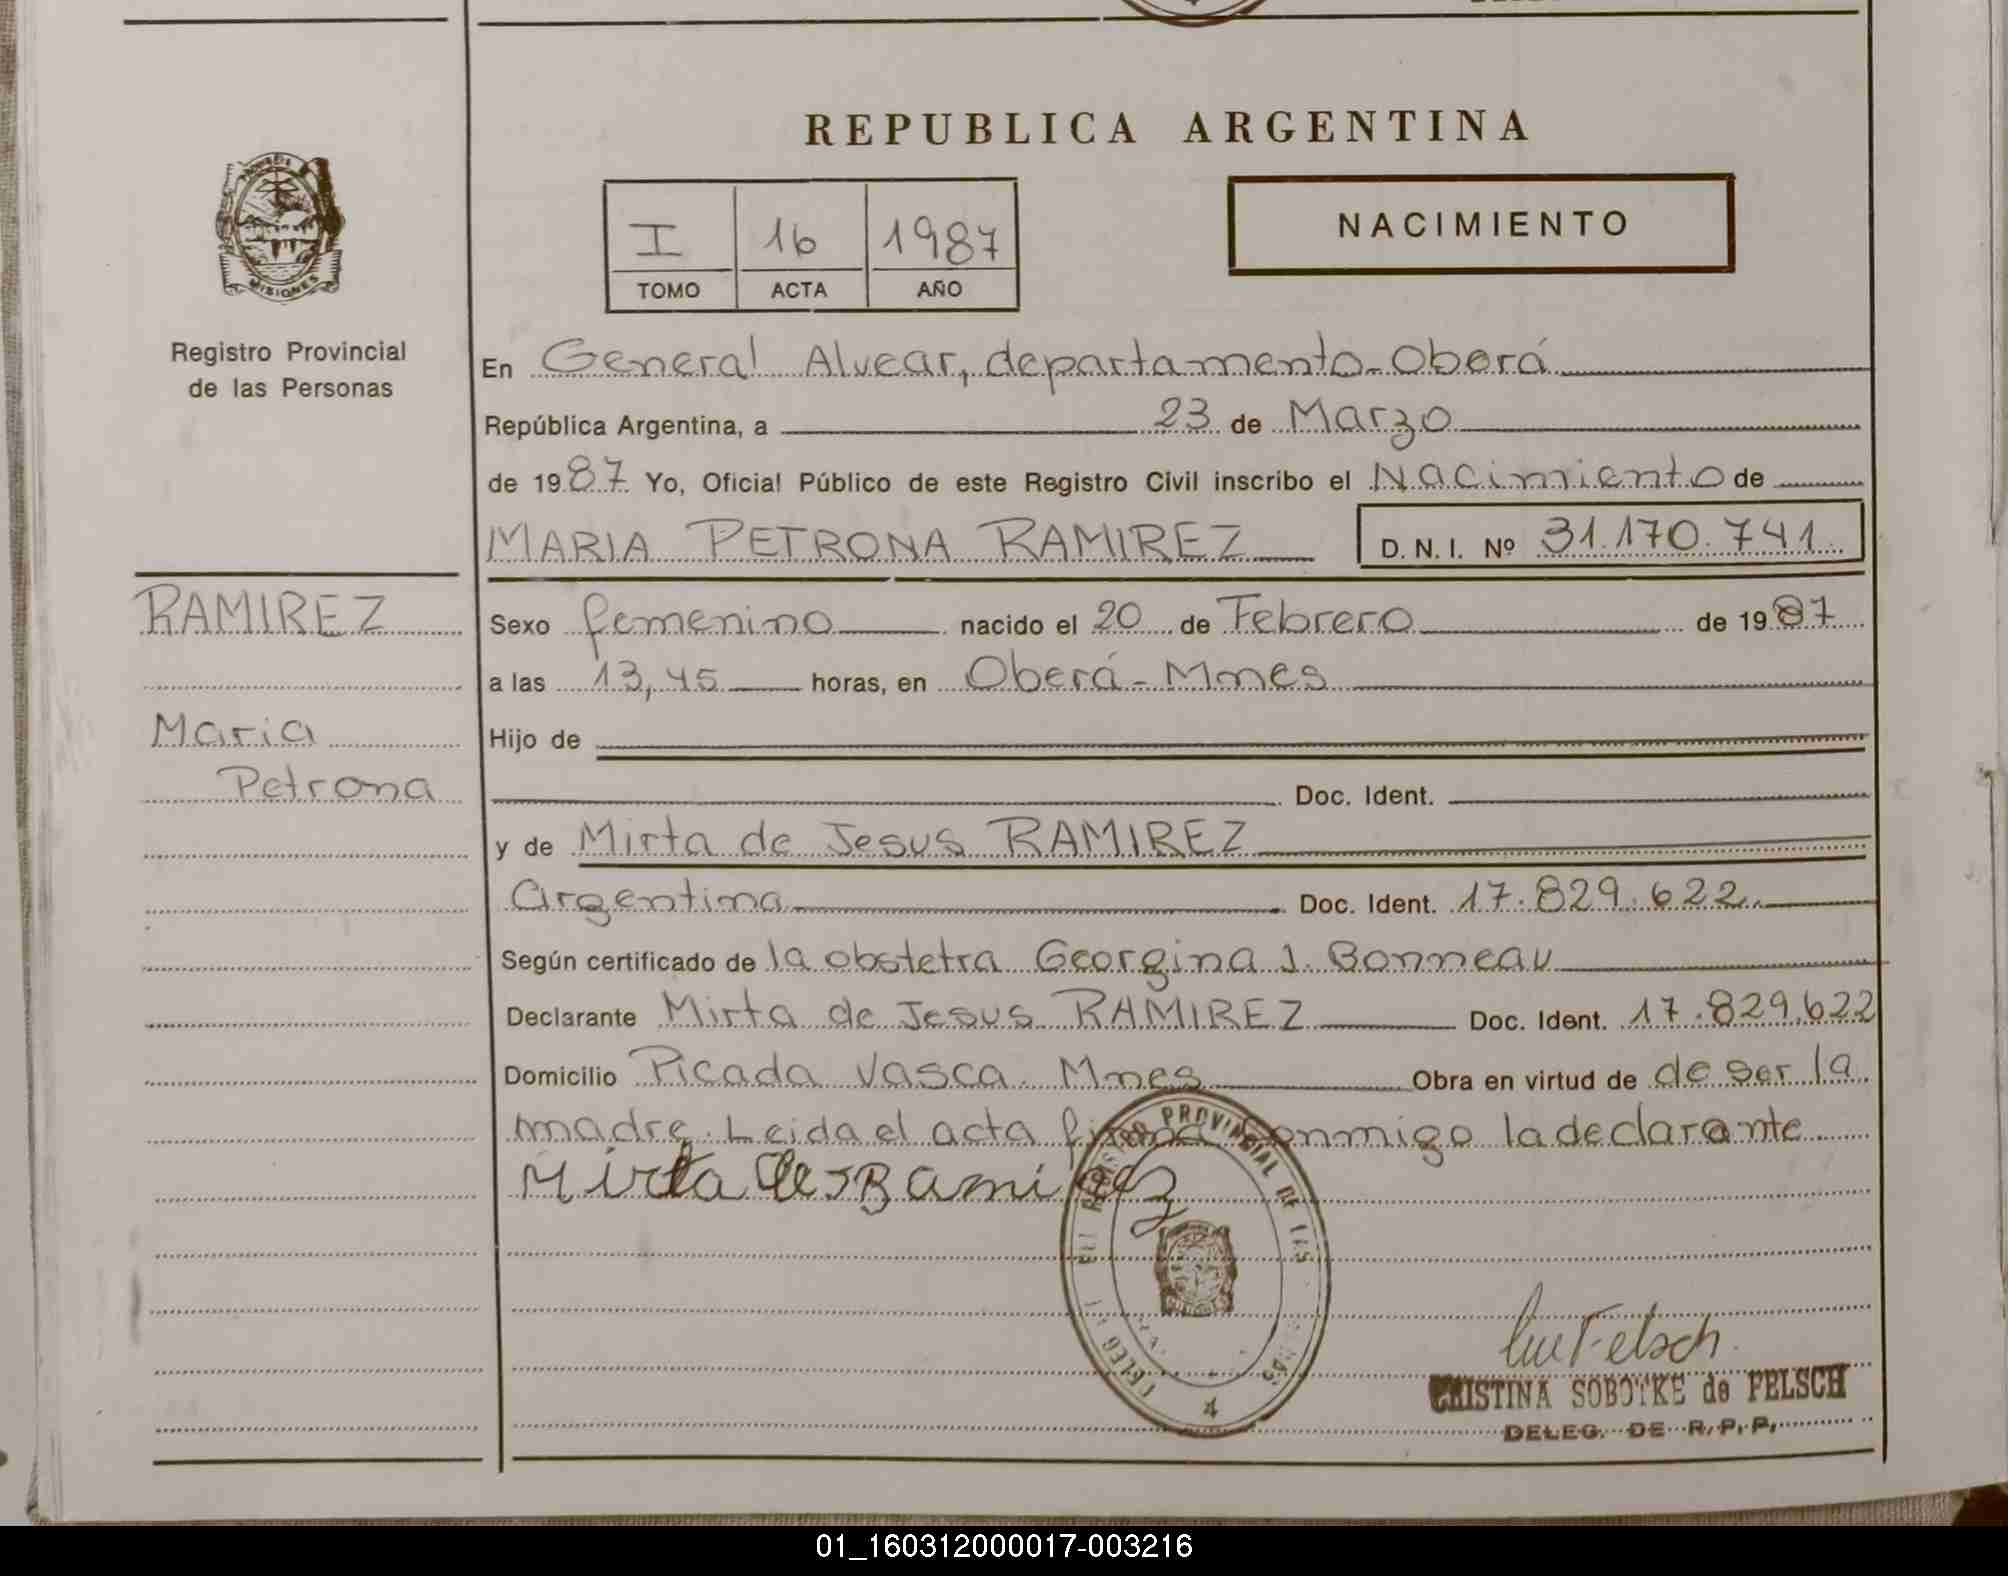 REPUBLICA ARGENTINA
I 16 1987
TOMO ACTA AÑO
NACIMIENTO
MISIONES
Registro Provincial
de las Personas
RAMIREZ
Maria
Petrona
En General Alvear, departamento Oberá
República Argentina, a 23 de Marzo
de 1987 Yo, Oficial Público de este Registro Civil inscribo el Nacimiento de
MARIA PETRONA RAMIREZ D. N. I. Nº 31.170.741
Sexo femenino nacido el 20 de Febrero de 1987
a las 13,45 horas, en Oberá - Mnes
Hijo de
Doc. Ident.
y de Mirta de Jesus RAMIREZ
Argentina Doc. Ident. 17.829.622
Según certificado de la obstetra Georgina J. Bonneau
Declarante Mirta de Jesus RAMIREZ Doc. Ident. 17.829.622
Domicilio Picada Vasca. Mnes Obra en virtud de de ser la
madre. Leida el acta firma conmigo la declarante
Mirta de J Ramirez
REGISTRO PROVINCIAL DE LAS
4
CRISTINA SOBOTKE de FELSCH
DELEG. DE R. P. P.
01_160312000017-003216